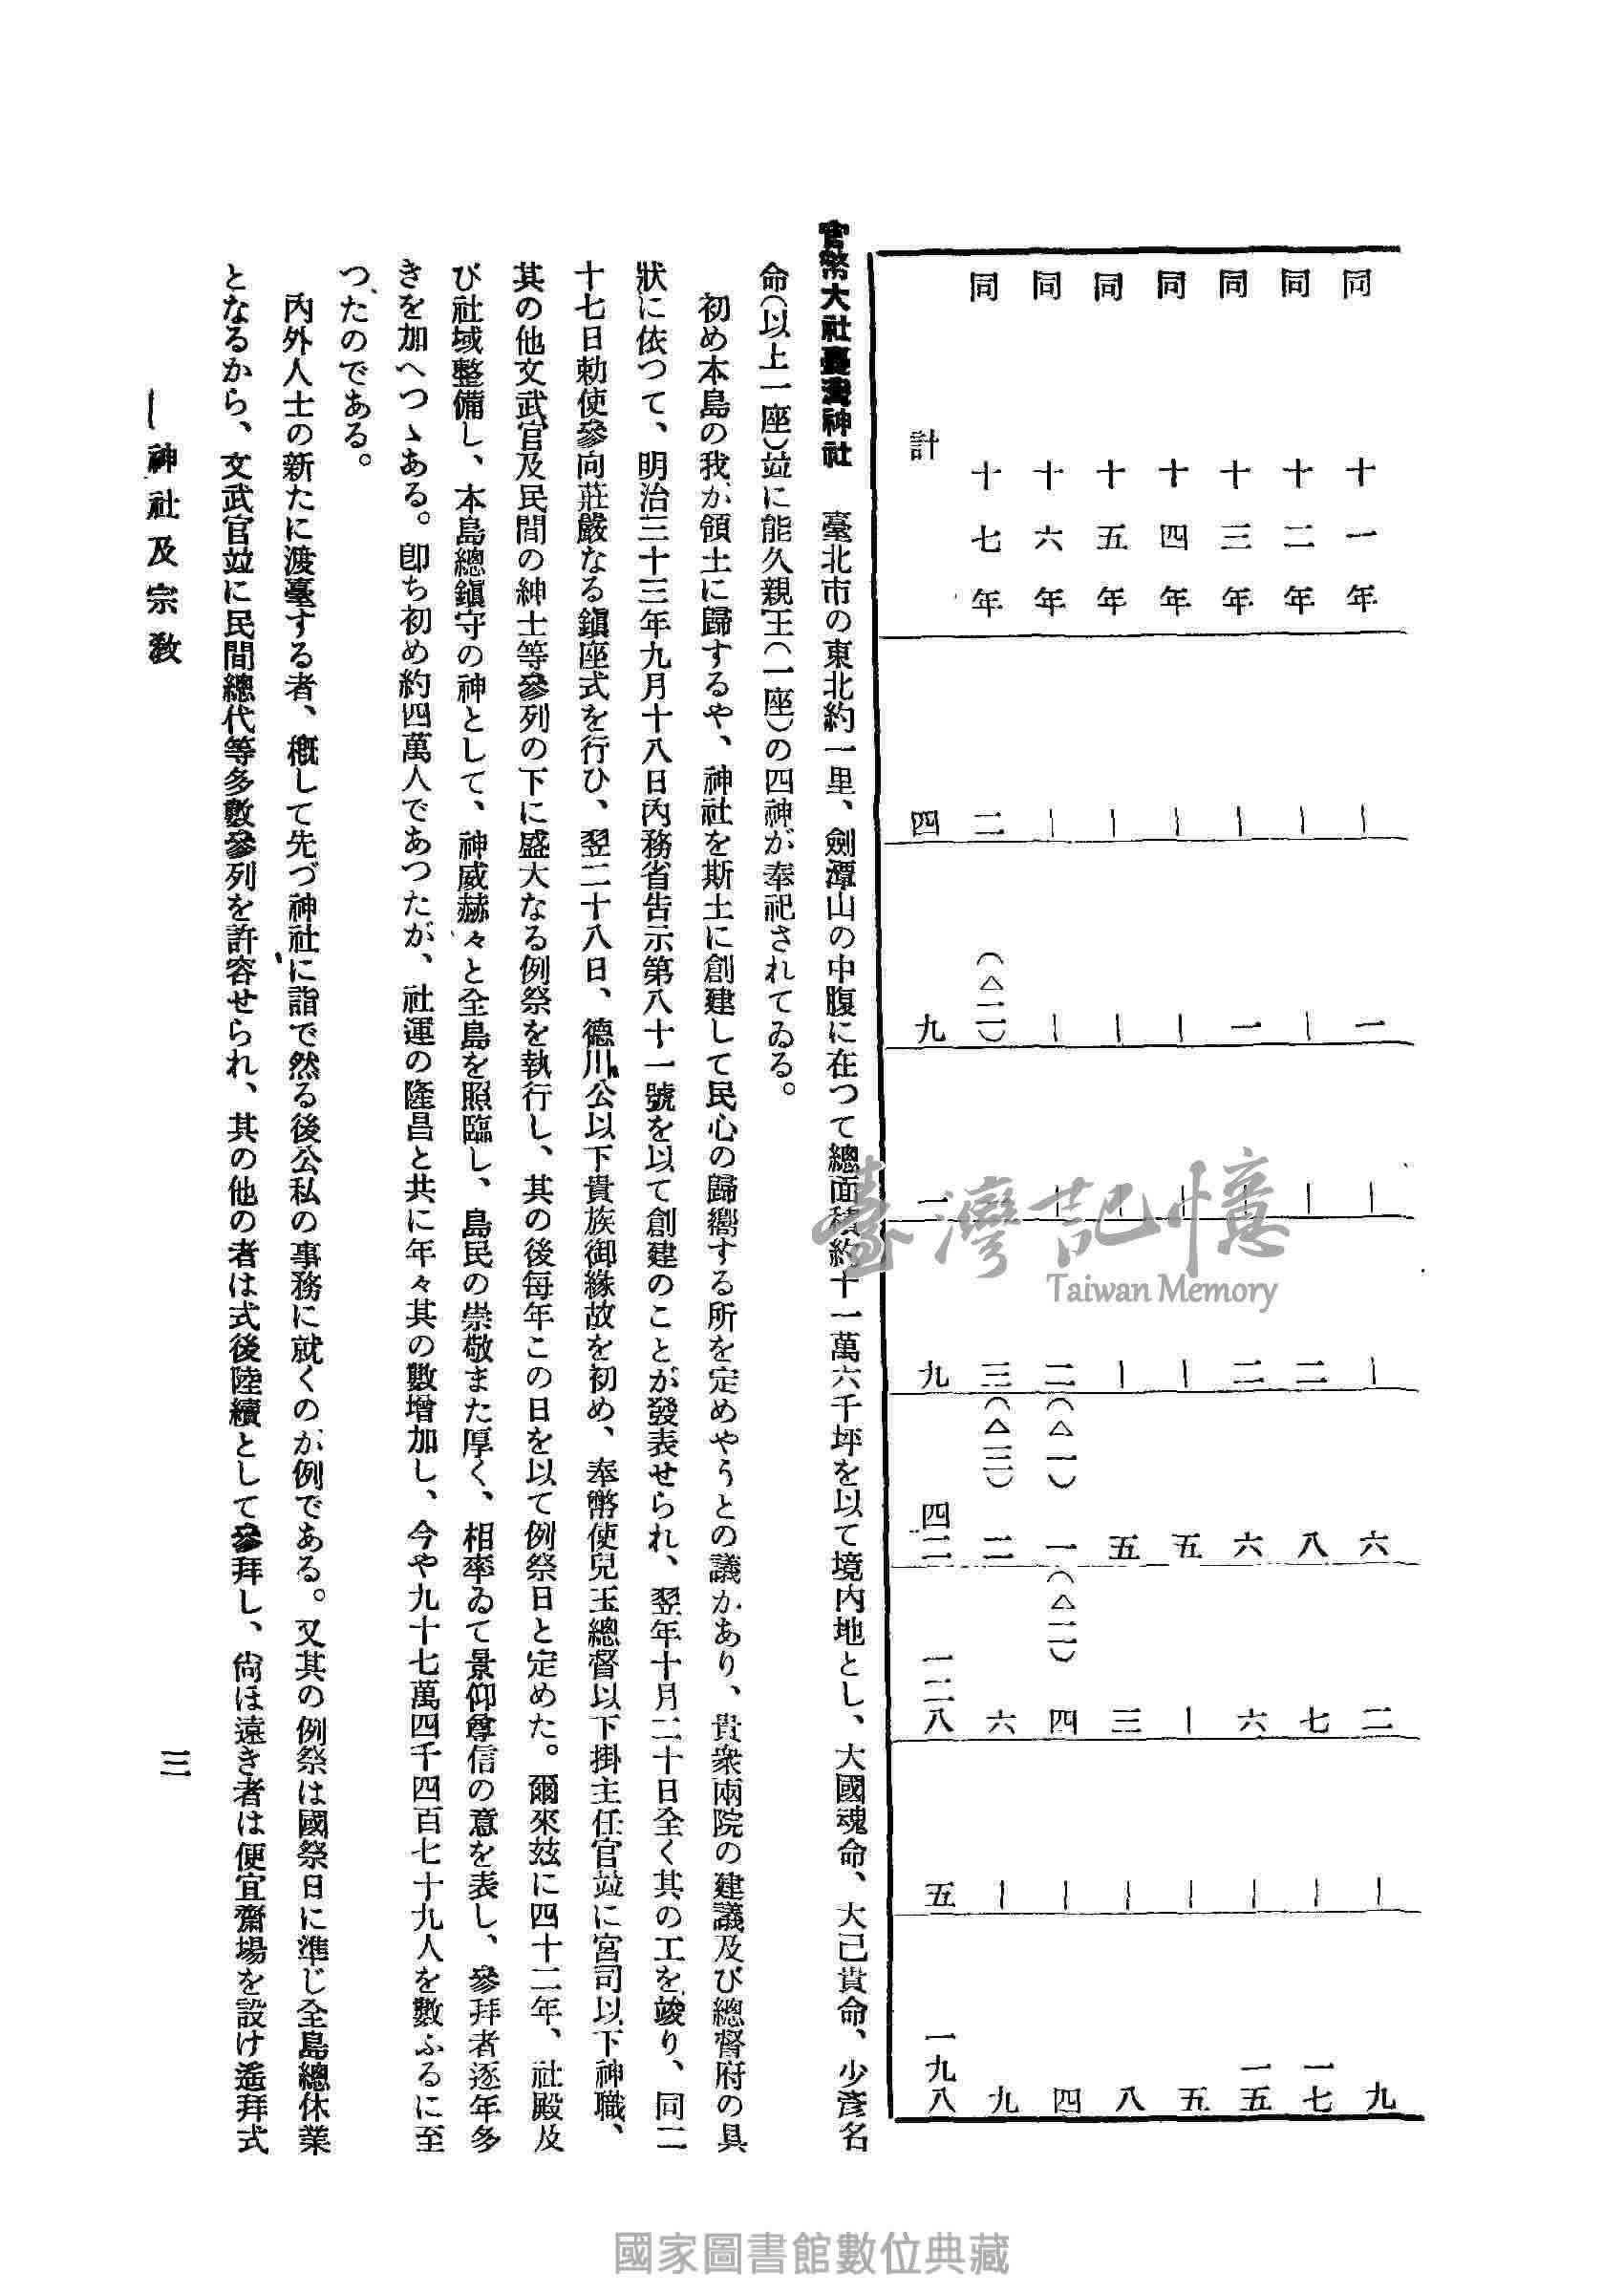 同十一年 ― 一 ― ― 六 二 ― 九
同十二年 ― ― ― 二 八 七 ― 一七
同十三年 ― 一 ― 二 六 六 ― 一五
同十四年 ― ― ― ― 五 ― ― 五
同十五年 ― ― ― ― 五 三 ― 八
同十六年 ― ― ― 二 (△一) 一 (△二) 四 ― 四
同十七年 二 (△二) 三 (△三) 二 六 ― 九
計 四 九 一 九 四二 一二八 五 一九八
官幣大社臺灣神社　臺北市の東北約一里、劍潭山の中腹に在つて總面積約十一萬六千坪を以て境內地とし、大國魂命、大己貴命、少彥名
命(以上一座)竝に能久親王(一座)の四神が奉祀されてゐる。
初め本島の我が領土に歸するや、神社を斯土に創建して民心の歸嚮する所を定めやうとの議があり、貴衆兩院の建議及び總督府の具
狀に依つて、明治三十三年九月十八日內務省告示第八十一號を以て創建のことが發表せられ、翌年十月二十日全く其の工を竣り、同二
十七日勅使參向莊嚴なる鎭座式を行ひ、翌二十八日、德川公以下貴族御緣故を初め、奉幣使兒玉總督以下掛主任官竝に宮司以下神職、
其の他文武官及民間の紳士等參列の下に盛大なる例祭を執行し、其の後每年この日を以て例祭日と定めた。爾來玆に四十二年、社殿及
び社域整備し、本島總鎭守の神として、神威赫々と全島を照臨し、島民の崇敬また厚く、相率ゐて景仰尊信の意を表し、參拜者逐年多
きを加へつゝある。卽ち初め約四萬人であつたが、社運の隆昌と共に年々其の數增加し、今や九十七萬四千四百七十九人を數ふるに至
つたのである。
內外人士の新たに渡臺する者、槪して先づ神社に詣で然る後公私の事務に就くのが例である。又其の例祭は國祭日に準じ全島總休業
となるから、文武官竝に民間總代等多數參列を許容せられ、其の他の者は式後陸續として參拜し、尙ほ遠き者は便宜齋場を設け遙拜式
―神社及宗敎
三
臺灣記憶
Taiwan Memory
國家圖書館數位典藏